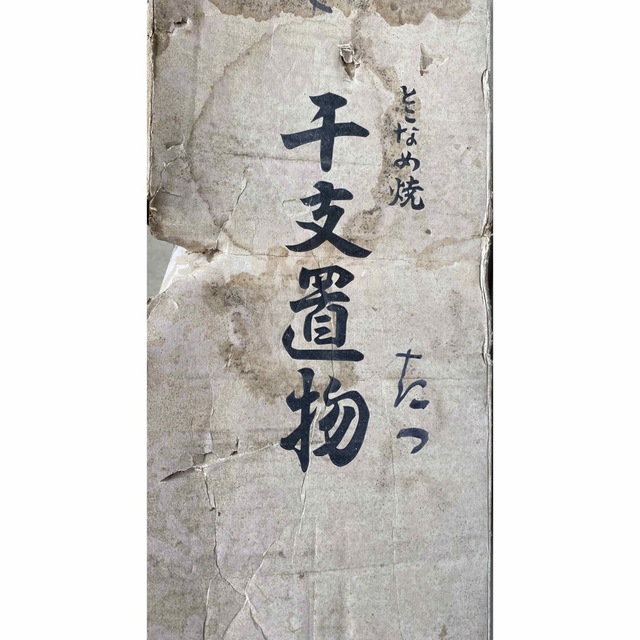 とこなめ焼
干支置物
たつ